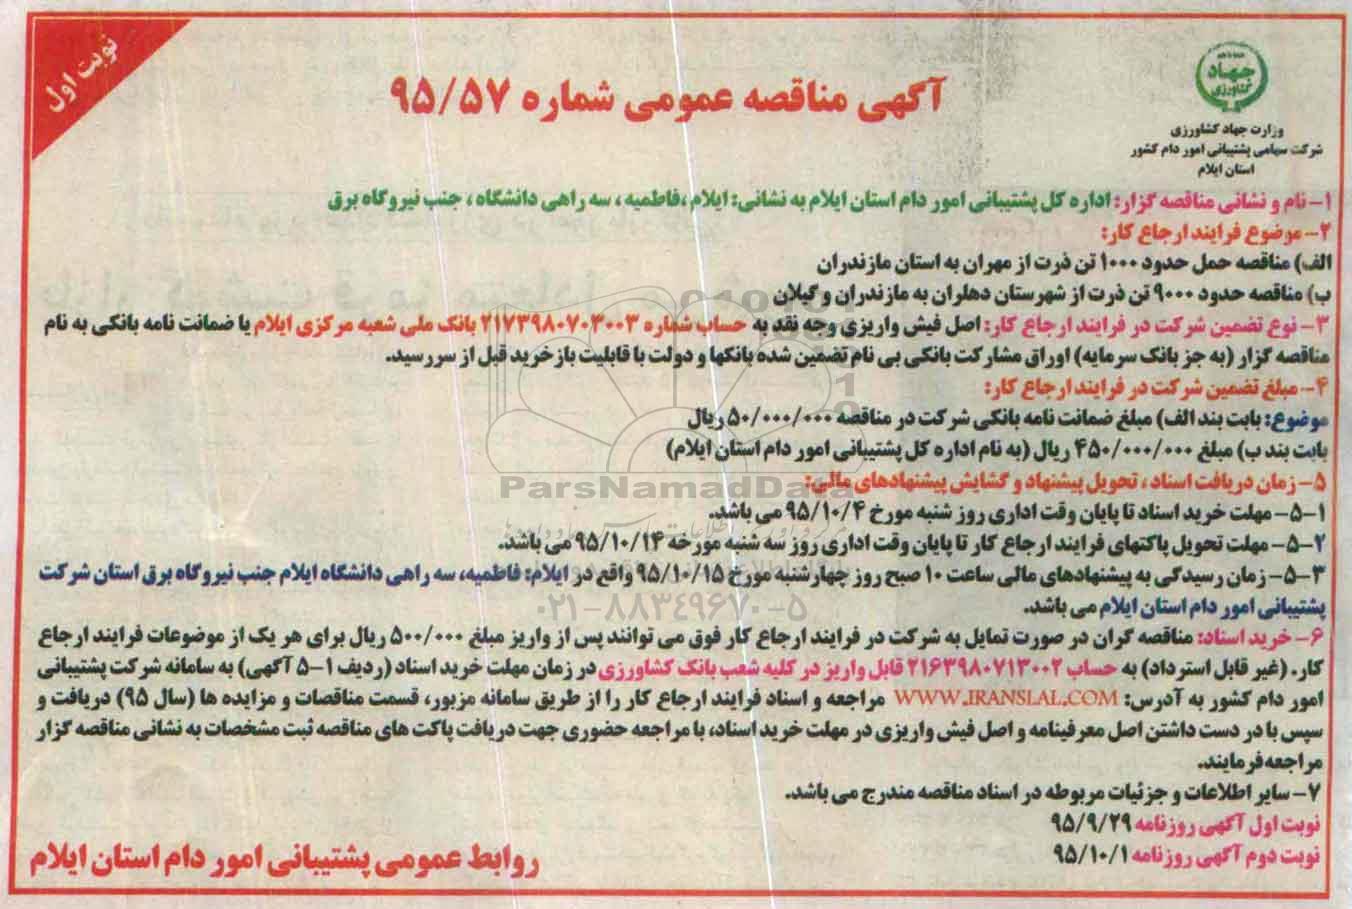 نوبت اول
جهاد
کشاورزی
وزارت جهاد کشاورزی
شرکت سهامی پشتیبانی امور دام کشور
استان ایلام
آگهی مناقصه عمومی شماره ۹۵/۵۷
۱- نام و نشانی مناقصه گزار: اداره کل پشتیبانی امور دام استان ایلام به نشانی: ایلام ،فاطمیه ، سه راهی دانشگاه ، جنب نیروگاه برق
۲- موضوع فرایند ارجاع کار:
الف) مناقصه حمل حدود ۱۰۰۰ تن ذرت از مهران به استان مازندران
ب) مناقصه حدود ۹۰۰۰ تن ذرت از شهرستان دهلران به مازندران و گیلان
۳- نوع تضمین شرکت در فرایند ارجاع کار: اصل فیش واریزی وجه نقد به حساب شماره ۲۱۷۳۹۸۰۷۰۳۰۰۳ بانک ملی شعبه مرکزی ایلام یا ضمانت نامه بانکی به نام
مناقصه گزار (به جز بانک سرمایه) اوراق مشارکت بانکی بی نام تضمین شده بانکها و دولت با قابلیت بازخرید قبل از سررسید.
۴- مبلغ تضمین شرکت در فرایند ارجاع کار:
موضوع: بابت بند الف) مبلغ ضمانت نامه بانکی شرکت در مناقصه ۵۰/۰۰۰/۰۰۰ ریال
بابت بند ب) مبلغ ۴۵۰/۰۰۰/۰۰۰ ریال (به نام اداره کل پشتیبانی امور دام استان ایلام)
ParsNamadData
۵- زمان دریافت اسناد ، تحویل پیشنهاد و گشایش پیشنهادهای مالی:
۵-۱- مهلت خرید اسناد تا پایان وقت اداری روز شنبه مورخ ۹۵/۱۰/۴ می باشد.
۵-۲- مهلت تحویل پاکتهای فرایند ارجاع کار تا پایان وقت اداری روز سه شنبه مورخه ۹۵/۱۰/۱۴ می باشد.
۵-۳- زمان رسیدگی به پیشنهادهای مالی ساعت ۱۰ صبح روز چهارشنبه مورخ ۹۵/۱۰/۱۵ واقع در ایلام: فاطمیه، سه راهی دانشگاه ایلام جنب نیروگاه برق استان شرکت
پشتیبانی امور دام استان ایلام می باشد.
۰۲۱-۸۸۳۴۹۶۷۰-۵
۶- خرید اسناد: مناقصه گران در صورت تمایل به شرکت در فرایند ارجاع کار فوق می توانند پس از واریز مبلغ ۵۰۰/۰۰۰ ریال برای هر یک از موضوعات فرایند ارجاع
کار. (غیر قابل استرداد) به حساب ۲۱۶۳۹۸۰۷۱۳۰۰۲ قابل واریز در کلیه شعب بانک کشاورزی در زمان مهلت خرید اسناد (ردیف ۱-۵ آگهی) به سامانه شرکت پشتیبانی
امور دام کشور به آدرس: WWW.IRANSLAL.COM مراجعه و اسناد فرایند ارجاع کار را از طریق سامانه مزبور، قسمت مناقصات و مزایده ها (سال ۹۵) دریافت و
سپس با در دست داشتن اصل معرفینامه و اصل فیش واریزی در مهلت خرید اسناد، با مراجعه حضوری جهت دریافت پاکت های مناقصه ثبت مشخصات به نشانی مناقصه گزار
مراجعه فرمایند.
۷- سایر اطلاعات و جزئیات مربوطه در اسناد مناقصه مندرج می باشد.
نوبت اول آگهی روزنامه ۹۵/۹/۲۹
نوبت دوم آگهی روزنامه ۹۵/۱۰/۱
روابط عمومی پشتیبانی امور دام استان ایلام